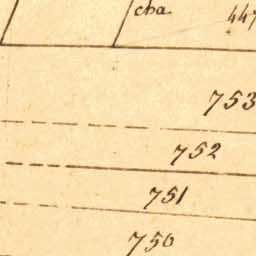 cha
447
753
752
751
750